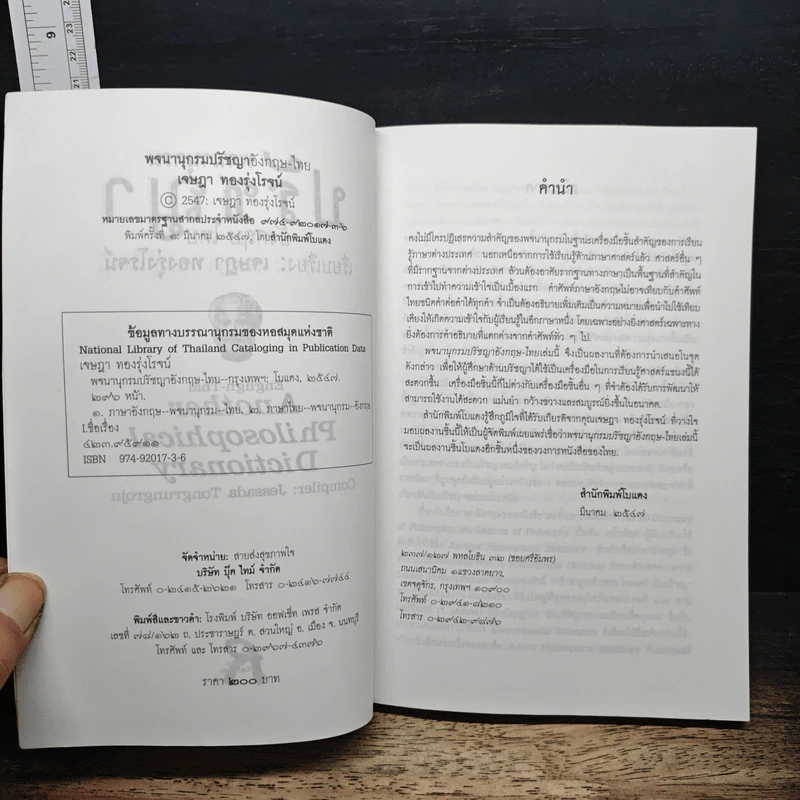 9
23
22
21
พจนานุกรมปรัชญาอังกฤษ-ไทย
เจษฎา ทองรุ่งโรจน์
© 2547: เจษฎา ทองรุ่งโรจน์
หมายเลขมาตรฐานสากลประจำหนังสือ ๙๗๔-๙๒๐๑๗-๓-๖
พิมพ์ครั้งที่ ๑: มีนาคม ๒๕๔๗, โดยสำนักพิมพ์โบแดง
ข้อมูลทางบรรณานุกรมของหอสมุดแห่งชาติ
National Library of Thailand Cataloging in Publication Data
เจษฎา ทองรุ่งโรจน์
พจนานุกรมปรัชญาอังกฤษ-ไทย--กรุงเทพฯ: โบแดง, ๒๕๔๗.
๒๙๖ หน้า.
๑. ภาษาอังกฤษ--พจนานุกรม--ไทย. ๒. ภาษาไทย--พจนานุกรม--อังกฤษ
I.ชื่อเรื่อง
๔๒๓.๙๕๙๑๑
ISBN 974-92017-3-6
จัดจำหน่าย: สายส่งสุขภาพใจ
บริษัท บุ๊ค ไทม์ จำกัด
โทรศัพท์ ๐-๒๔๑๕-๒๖๒๑ โทรสาร ๐-๒๔๑๖-๗๗๔๔
พิมพ์สีและขาวดำ: โรงพิมพ์ บริษัท ออฟเซ็ท เพรส จำกัด
เลขที่ ๗๘/๑๖๒ ถ. ประชาราษฎร์ ต. สวนใหญ่ อ. เมือง จ. นนทบุรี
โทรศัพท์ และ โทรสาร ๐-๒๙๖๗-๔๓๗๖
ราคา ๒๐๐ บาท
คำนำ
คงไม่มีใครปฏิเสธความสำคัญของพจนานุกรมในฐานะเครื่องมือชิ้นสำคัญของการเรียน
รู้ภาษาต่างประเทศ นอกเหนือจากการใช้เรียนรู้ด้านภาษาศาสตร์แล้ว ศาสตร์อื่น ๆ
ที่มีรากฐานจากต่างประเทศ ล้วนต้องอาศัยรากฐานทางภาษาเป็นพื้นฐานที่สำคัญใน
การเข้าไปทำความเข้าใจเป็นเบื้องแรก คำศัพท์ภาษาอังกฤษไม่อาจเทียบกับคำศัพท์
ไทยชนิดคำต่อคำได้ทุกคำ จำเป็นต้องอธิบายเพิ่มเติมเป็นความหมายเพื่อนำไปใช้เทียบ
เคียงให้เกิดความเข้าใจกับผู้เรียนรู้ในอีกภาษาหนึ่ง โดยเฉพาะอย่างยิ่งศาสตร์เฉพาะทาง
ยิ่งต้องการคำอธิบายที่แตกต่างจากคำศัพท์ทั่ว ๆ ไป.
พจนานุกรมปรัชญาอังกฤษ-ไทยเล่มนี้ จึงเป็นผลงานที่ต้องการนำเสนอในจุด
ดังกล่าว เพื่อให้ผู้ศึกษาด้านปรัชญาได้ใช้เป็นเครื่องมือในการเรียนรู้ศาสตร์แขนงนี้ได้
สะดวกขึ้น เครื่องมือชิ้นนี้ก็ไม่ต่างกับเครื่องมือชิ้นอื่น ๆ ที่จำต้องได้รับการพัฒนาให้
สามารถใช้งานได้สะดวก แม่นยำ กว้างขวางและสมบูรณ์ยิ่งขึ้นในอนาคต.
สำนักพิมพ์โบแดงรู้สึกภูมิใจที่ได้รับเกียรติจากคุณเจษฎา ทองรุ่งโรจน์ ที่วางใจ
มอบผลงานชิ้นนี้ให้เป็นผู้จัดพิมพ์เผยแพร่เชื่อว่าพจนานุกรมปรัชญาอังกฤษ-ไทยเล่มนี้
จะเป็นผลงานชิ้นโบแดงอีกชิ้นหนึ่งของวงการหนังสือของไทย.
สำนักพิมพ์โบแดง
มีนาคม ๒๕๔๗
๒๓๗/๑๒๗ พหลโยธิน ๓๒ (ซอยศรีอัมพร)
ถนนเสนานิคม ๑แขวงลาดยาว,
เขตจตุจักร, กรุงเทพฯ ๑๐๙๐๐
โทรศัพท์ ๐-๒๙๔๑-๘๒๑๐
โทรสาร ๐-๒๙๔๒-๙๘๗๖